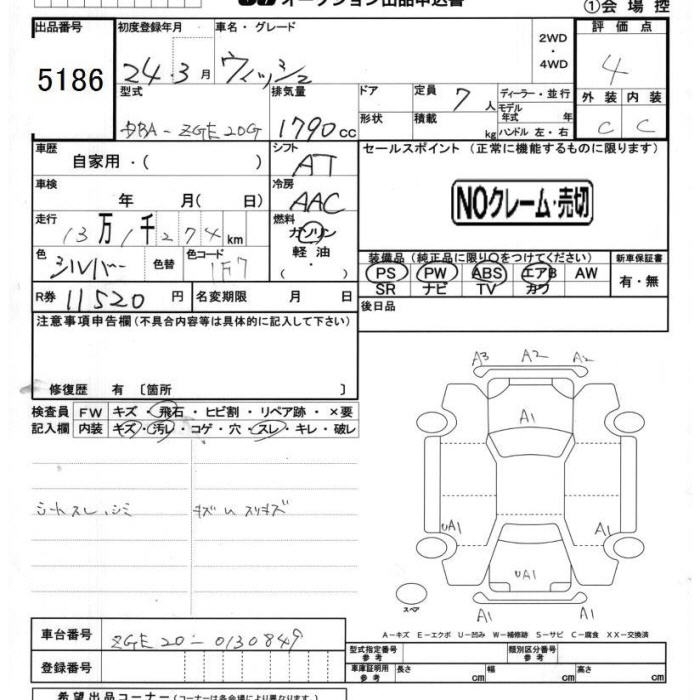 オークション出品申込書
①会場控
出品番号 初度登録年月 車名・グレード 2WD・4WD 評価点
5186 24.3月 ウィッシュ 4
型式 排気量 ドア 定員 7人 ディーラー・並行 外装 内装
DBA-ZGE20G 1790cc 形状 積載 kg モデル年式 年 ハンドル 左・右 C C
車歴 シフト セールスポイント (正常に機能するものに限ります)
自家用・( ) AT
車検 冷房
年 月( 日) AAC NOクレーム・売切
走行 燃料
13万1千274km ガソリン
軽油
・( )
色 色替 色コード 装備品(純正品に限り○をつけてください) 新車保証書
シルバー 1F7 PS PW ABS エアB AW 有・無
SR ナビ TV カワ
R券 11520円 名変期限 月 日 後日品
注意事項申告欄(不具合内容等は具体的に記入して下さい)
修復歴 有 〔箇所 〕
検査員 FW キズ・飛石・ヒビ割・リペア跡・×要
記入欄 内装 キズ・汚レ・コゲ・穴・スレ・キレ・破レ
シートスレ、シミ キズ スリキズ
A3 A2 A2
A1
UA1 A1
UA1
A1 A1
スペア
A-キズ E-エクボ U-凹み W-補修跡 S-サビ C-腐食 XX-交換済
車台番号 ZGE20-0130849
型式指定番号 参考 類別区分番号 参考
登録番号 車庫証明用 参考 長さ cm 幅 cm 高さ cm
希望出品コーナー(コーナーは各会場により異なります)